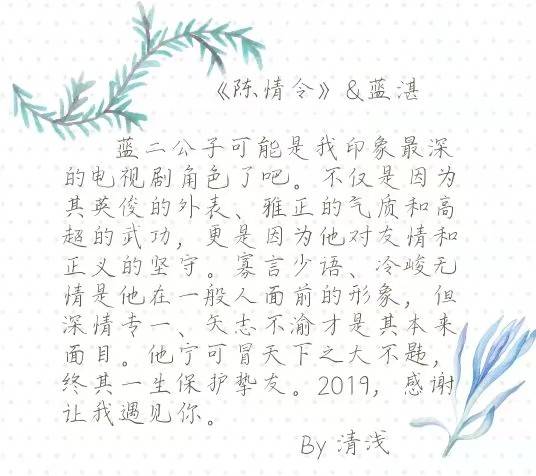 《陈情令》&蓝湛
蓝二公子可能是我印象最深
的电视剧角色了吧。不仅是因为
其英俊的外表、雅正的气质和高
超的武功，更是因为他对友情和
正义的坚守。寡言少语、冷峻无
情是他在一般人面前的形象，但
深情专一、矢志不渝才是其本来
面目。他宁可冒天下之大不韪，
终其一生保护挚友。2019，感谢
让我遇见你。
By 清浅